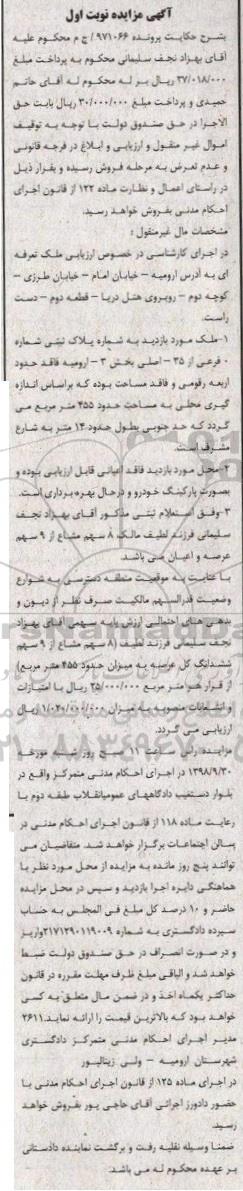 آگهی مزایده نوبت اول
بشرح حکایت پرونده ۹۷۱۰۶۶ / ج م محکوم علیه
آقای بهزاد نجف سلیمانی محکوم به پرداخت مبلغ
۳۷/۰۱۸/۰۰۰ ریال بر له محکوم له آقای حاتم
حمیدی و پرداخت مبلغ ۳۰/۰۰۰/۰۰۰ ریال بابت حق
الاجرا در حق صندوق دولت با توجه به توقیف
اموال غیر منقول و ارزیابی و ابلاغ در فرجه قانونی
و عدم تعرض به مرحله فروش رسیده و بقرار ذیل
در راستای اعمال و نظارت ماده ۱۲۲ از قانون اجرای
احکام مدنی بفروش خواهد رسید.
مشخصات مال غیرمنقول :
در اجرای کارشناسی در خصوص ارزیابی ملک تعرفه
ای به آدرس ارومیه – خیابان امام – خیابان طرزی –
کوچه دوم – روبروی هتل دریا – قطعه دوم – دست
راست.
۱-ملک مورد بازدید به شماره پلاک ثبتی شماره
۰ فرعی از ۳۵ – اصلی بخش ۳ – ارومیه فاقد حدود
اربعه رقومی و فاقد مساحت بوده که براساس اندازه
گیری محلی به مساحت حدود ۴۵۵ متر مربع می
گردد که حد جنوبی بطول حدود ۱۴ متر به شارع
مشرف است.
۲-محل مورد بازدید فاقد اعیانی قابل ارزیابی بوده و
بصورت پارکینگ خودرو و درحال بهره برداری است.
۳-وفق استعلام ثبتی مذکور آقای بهزاد نجف
سلیمانی فرزند لطیف مالک ۸ سهم مشاع از ۹ سهم
عرصه و اعیان می باشد.
با عنایت به موقعیت منطقه دسترسی به شوارع
وضعیت قدرالسهم مالکیت صرف نظر از دیون و
بدهی های احتمالی ارزش پایه سهمی آقای بهزاد
نجف سلیمانی فرزند لطیف (۸ سهم مشاع از ۹ سهم
ششدانگ کل عرصه به میزان حدود ۴۵۵ متر مربع)
از قرار هر متر مربع ۲۵/۰۰۰/۰۰۰ ریال با امتیازات
و انشعابات منصوبه به میزان ریال
ارزیابی می گردد.
مزایده راس ساعت ۱۱ صبح روز شنبه مورخه
۱۳۹۸/۹/۳۰ در اجرای احکام مدنی متمرکز واقع در
بلوار دستغیب دادگاههای عمومیانقلاب طبقه دوم با
رعایت ماده ۱۱۸ از قانون اجرای احکام مدنی در
سالن اجتماعات برگزار خواهد شد. متقاضیان می
توانند پنج روز مانده به مزایده از محل مورد نظر با
هماهنگی دایره اجرا بازدید و سپس در محل مزایده
حاضر و ۱۰ درصد کل مبلغ فی المجلس به حساب
سپرده دادگستری به شماره ۲۱۷۱۲۹۰۱۱۹۰۰۹واریز
و در صورت انصراف در حق صندوق دولت ضبط
خواهد شد و الباقی مبلغ ظرف مهلت مقرره در قانون
حداکثر یکماه اخذ و در ضمن مال متعلق به کسی
خواهد بود که بالاترین قیمت را ارائه نماید.۲۶۱۱
مدیر اجرای احکام مدنی متمرکز دادگستری
شهرستان ارومیه – ولی زینالپور
در اجرای ماده ۱۲۵ از قانون اجرای احکام مدنی با
حضور دادورز اجرائی آقای حاجی پور بفروش خواهد
رسید.
ضمنا وسیله نقلیه رفت و برگشت نماینده دادستانی
بر عهده محکوم له می باشد.